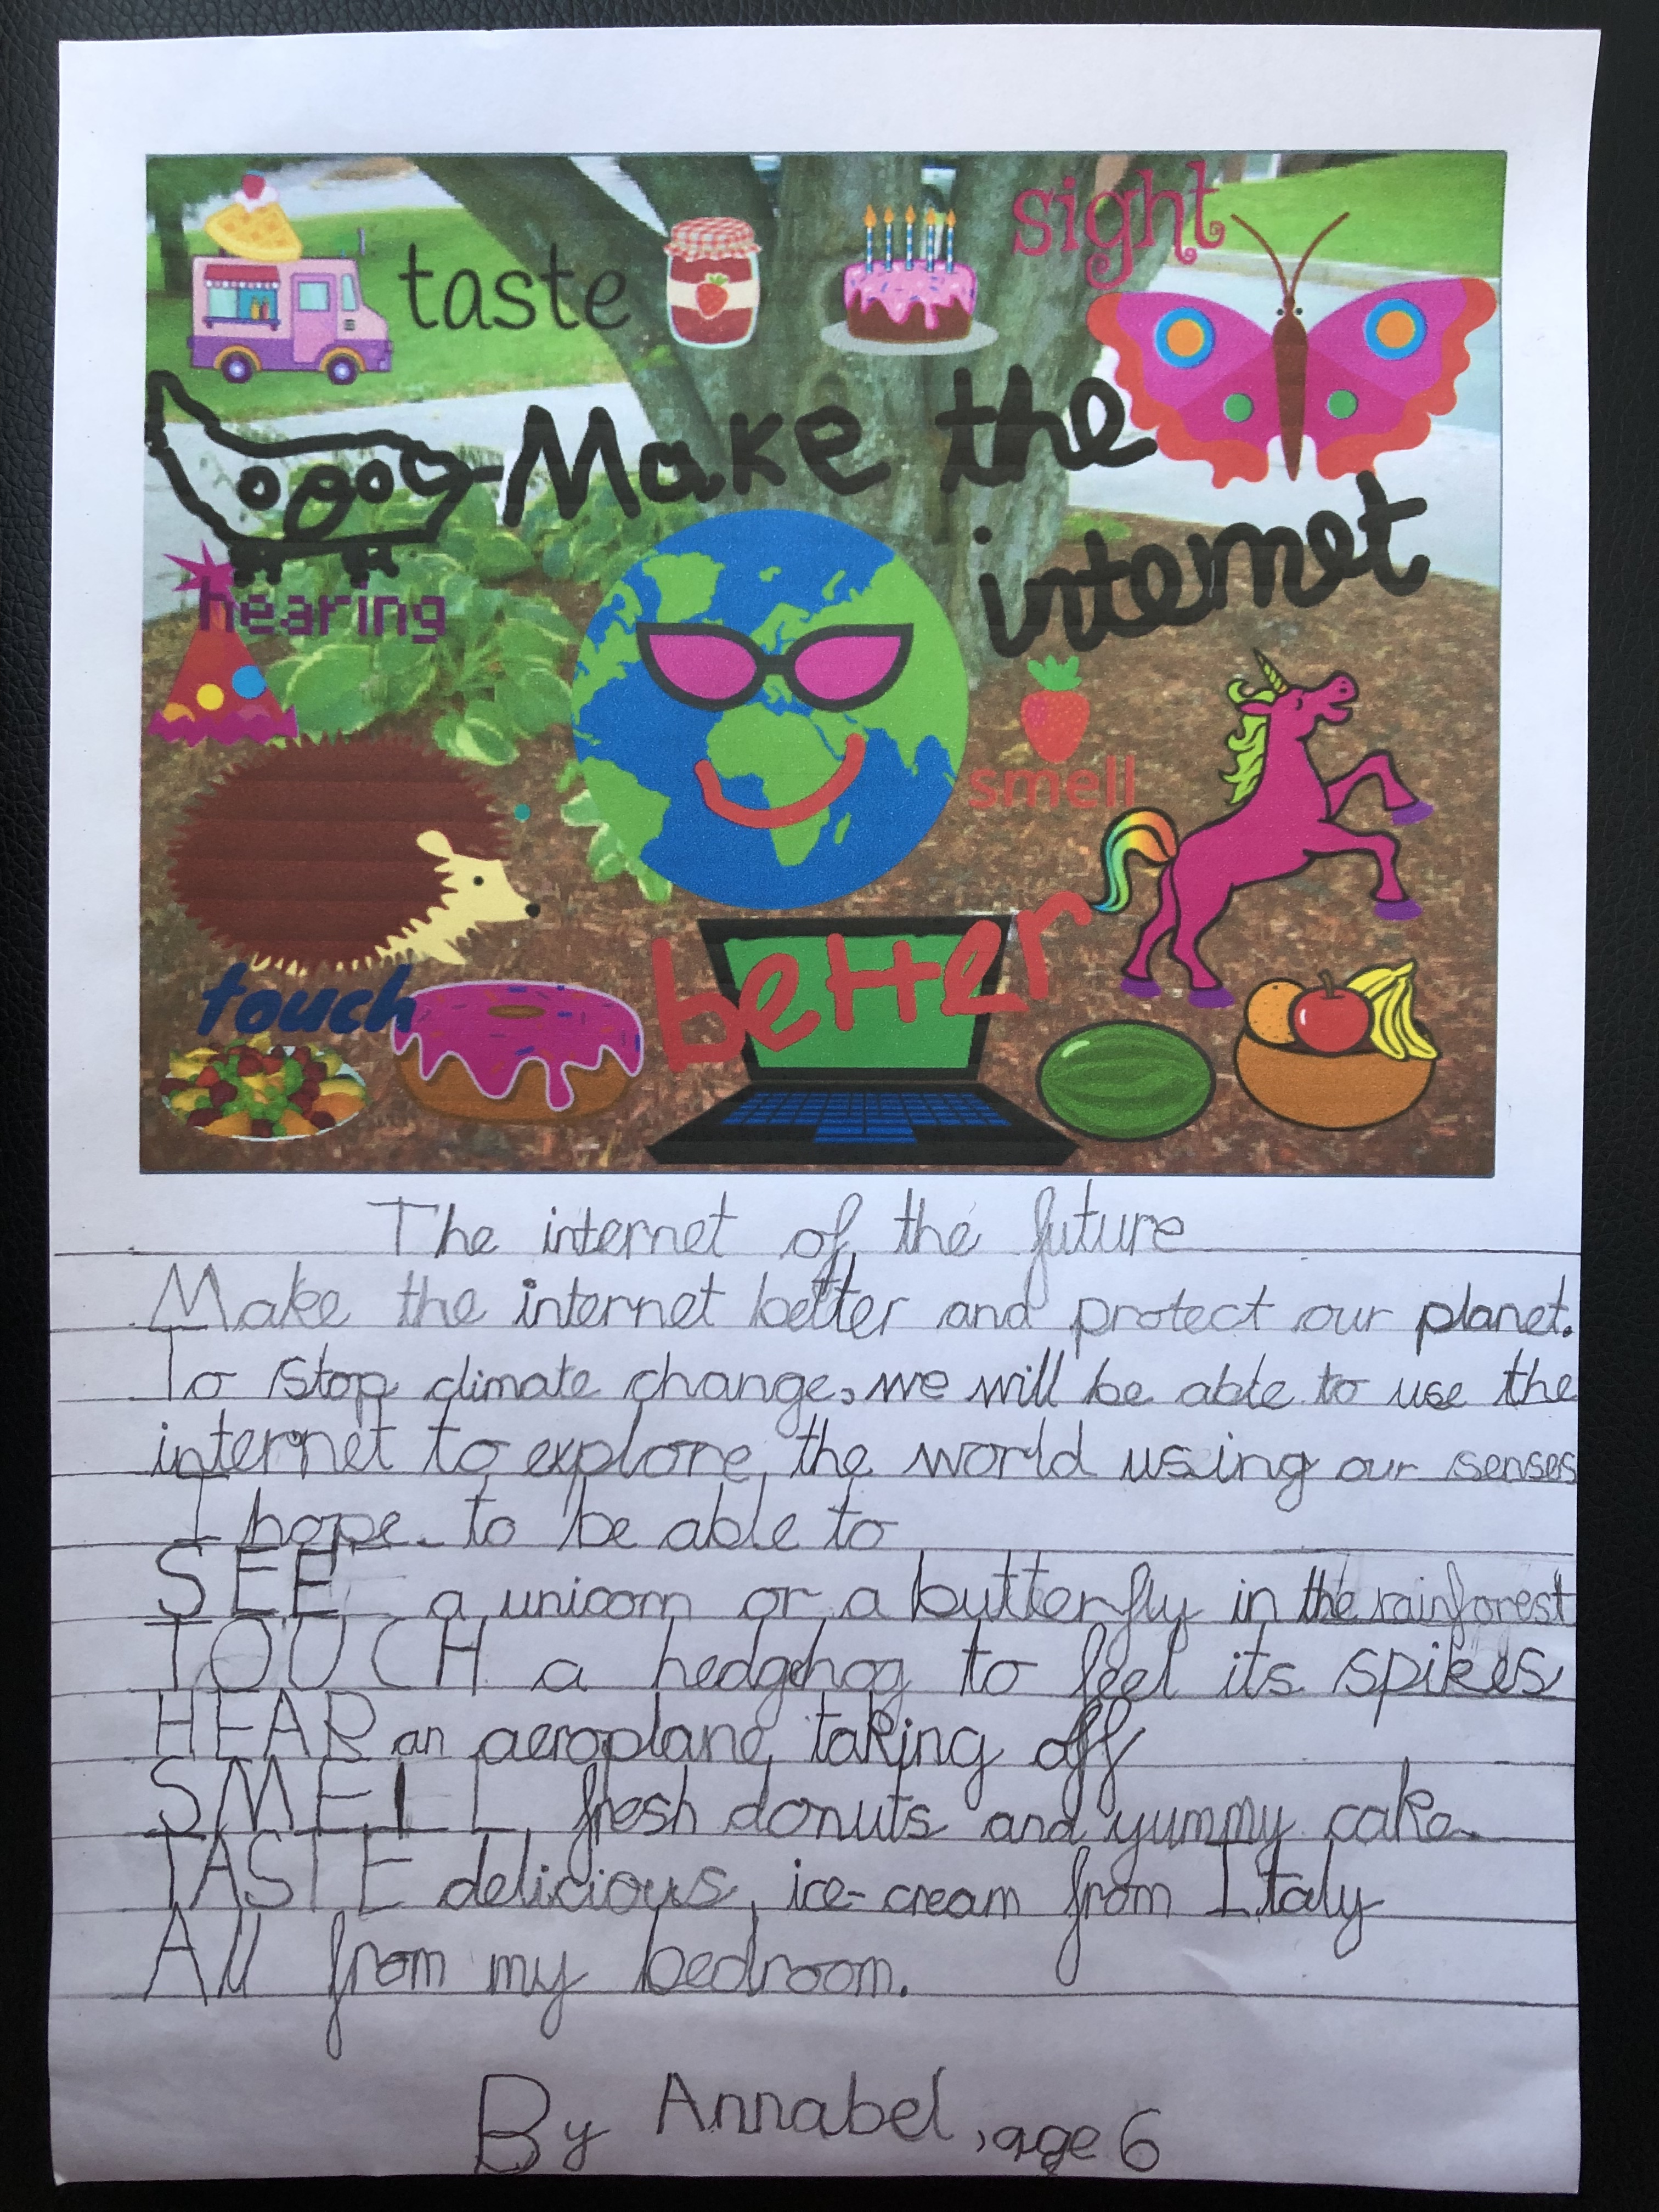 taste
sight
Make the
internet
hearing
smell
better
touch
The internet of the future
Make the internet better and protect our planet.
To stop climate change, we will be able to use the
internet to explore the world using our senses
I hope to be able to
SEE a unicorn or a butterfly in the rainforest
TOUCH a hedgehog to feel its spikes
HEAR an aeroplane taking off
SMELL fresh donuts and yummy cake.
TASTE delicious ice-cream from Italy
All from my bedroom.
By Annabel, age 6